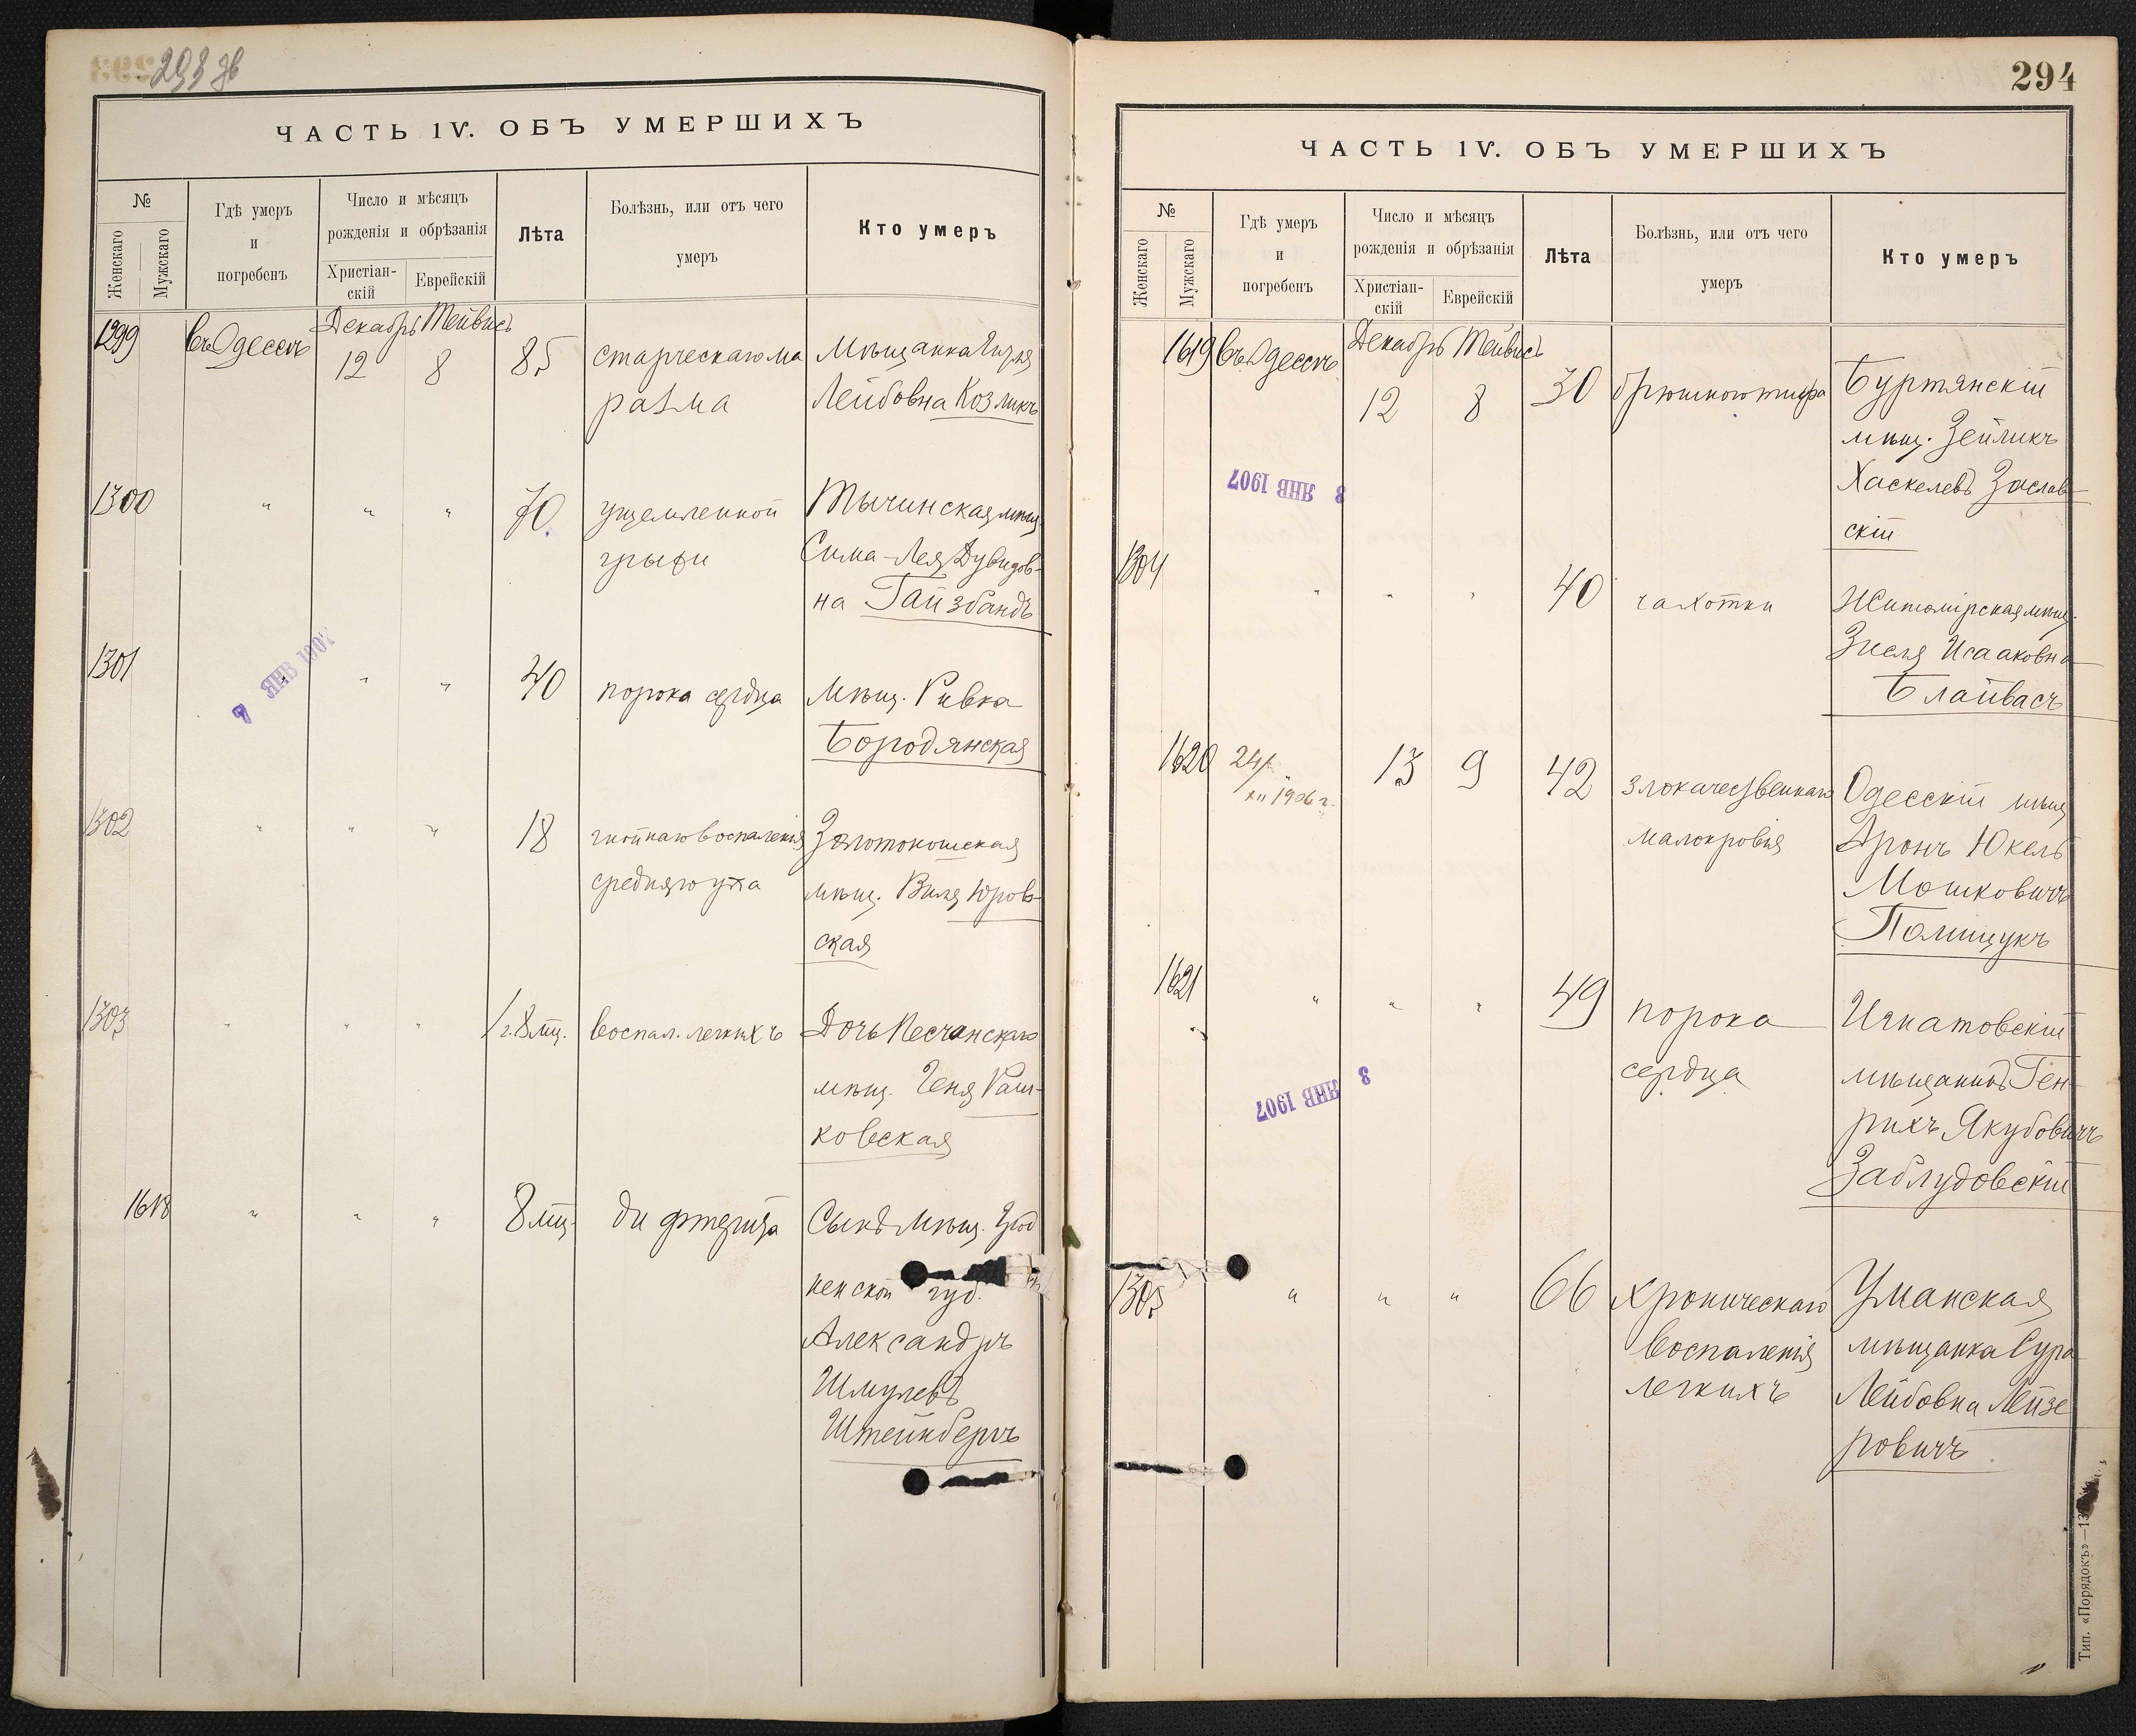 293 об
ЧАСТЬ IV. ОБЪ УМЕРШИХЪ
№
Женскаго
Мужскаго
Гдѣ умеръ
и
погребенъ
Число и мѣсяцъ
рожденія и обрѣзанія
Христіан-
скій
Еврейскій
Лѣта
Болѣзнь, или отъ чего
умеръ
Кто умеръ
Декабрь Тейвисъ
1299 въ Одессѣ 12 8 85 старческаго ма Мѣщанка
разма Лейбовна Козликъ
1300 " " " 70 ущемленной Тычинская мѣщ.
грыжи Сима-Лея Дувидов-
на Гайзбандъ
7 ЯНВ 1907
1301 " " " 40 порока сердца Мѣщ. Ривка
Бородянская
1302 " " " 18 гнойнаго воспаленія Золотоношская
средняго уха мѣщ. Юров-
ская
1303 " " " 1 г. 8 мц. воспал. легкихъ Дочь Песчанскаго
мѣщ. Геня Раш-
ковская
1618 " " " 8 мц. дифтерита Сынъ мѣщ.
ненской губ.
Александръ
Шмулевъ
Штейнбергъ
294
ЧАСТЬ IV. ОБЪ УМЕРШИХЪ
№
Женскаго
Мужскаго
Гдѣ умеръ
и
погребенъ
Число и мѣсяцъ
рожденія и обрѣзанія
Христіан-
скій
Еврейскій
Лѣта
Болѣзнь, или отъ чего
умеръ
Кто умеръ
Декабрь Тейвисъ
1619 въ Одессѣ 12 8 30 брюшного тифа Буртянскій
мѣщ. Зейликъ
Хаскелевъ Заслав-
скій
3 ЯНВ 1907
1304 " " " 40 чахотки Житомірская мѣщ.
Зисля Исааковна
Блайвасъ
1620 24/XII 1906 г. 13 9 42 злокачественнаго Одесскій мѣщ
малокровія Аронъ Юкель
Мошковичъ
Полищукъ
1621 " " " 49 порока Игнатовскій
сердца мѣщанинъ Ген-
рихъ Якубовичъ
Заблудовскій
3 ЯНВ 1907
1305 " " " 66 хроническаго Уманская
воспаленія мѣщанка Сура
легкихъ Лейбовна Лейзе
ровичъ
Тип. «Порядокъ»